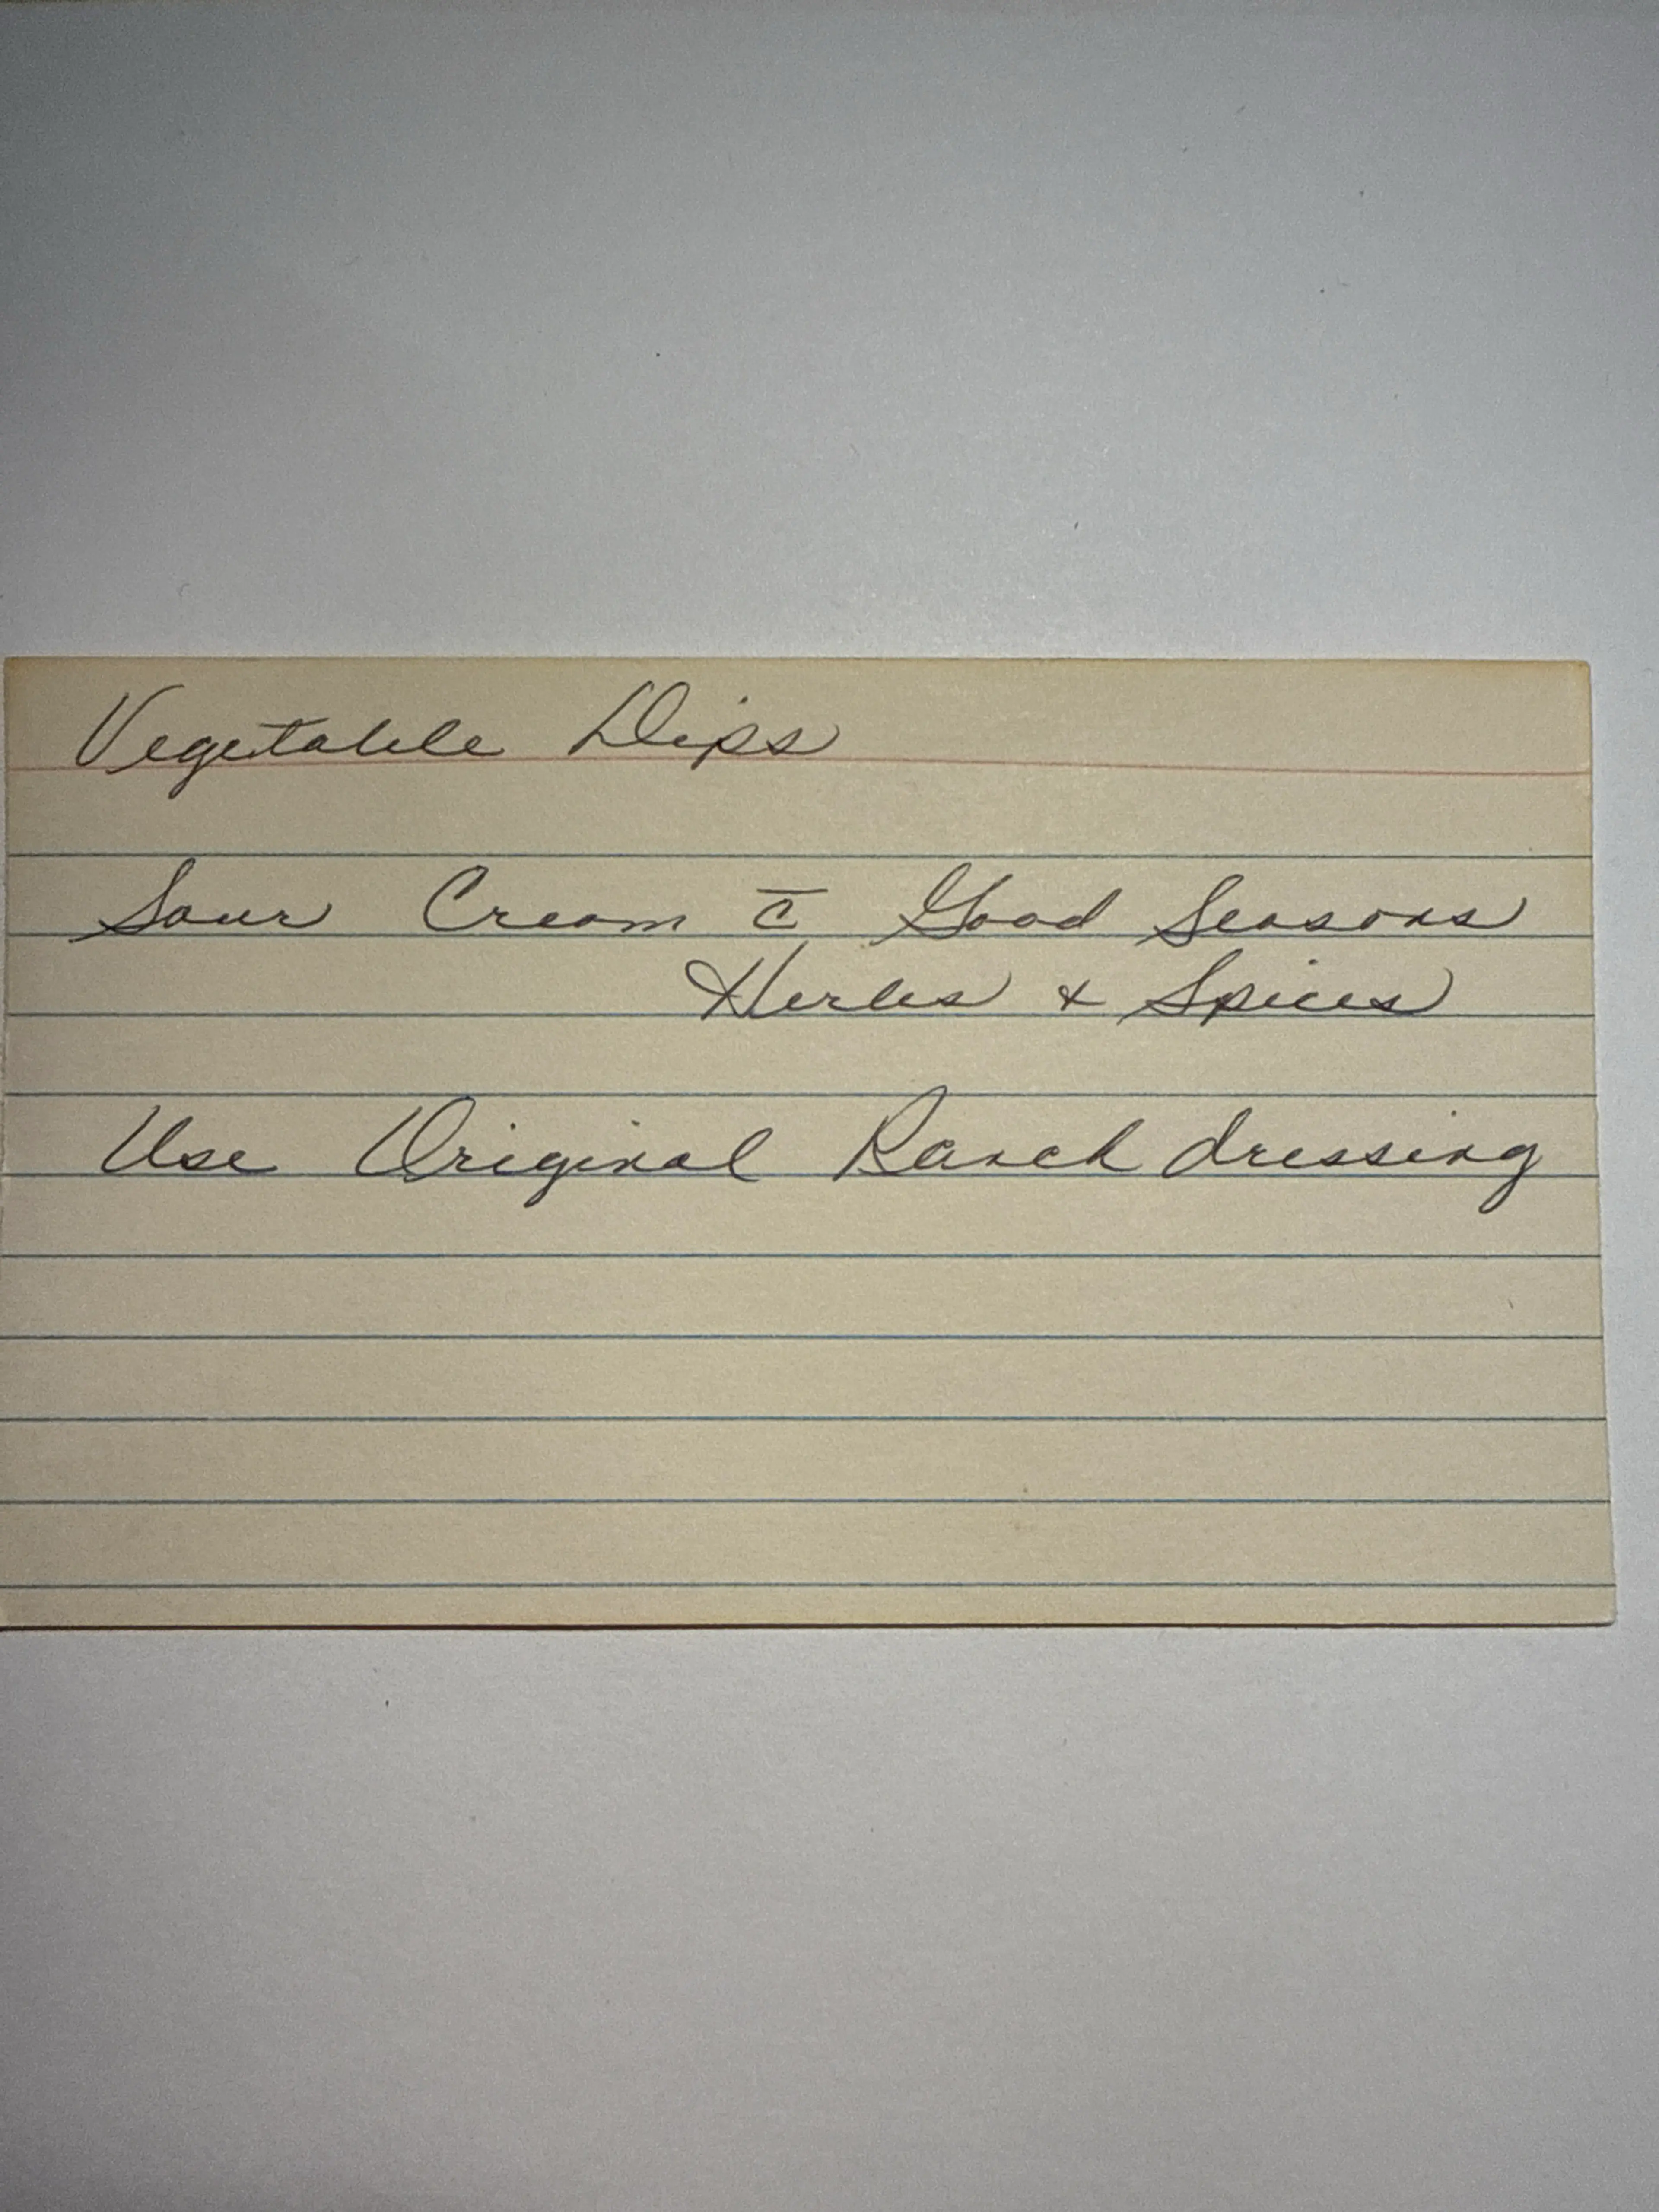 Vegetable Dips
Sour Cream c̄ Good Seasons
Herbs + Spices
Use Original Ranch dressing